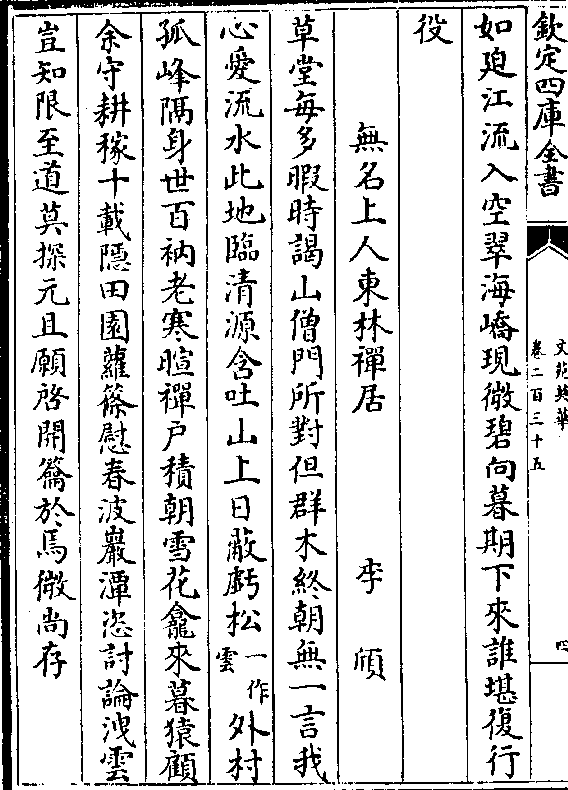 欽定四庫全書
文苑英華
卷二百三十五
四
如廻江流入空翠海嶠現微碧向暮期下來誰堪復行
役
無名上人東林禪居 李頎
草堂每多暇時謁山僧門所對但群木終朝無一言我
心愛流水此地臨清源含吐山上日蔽虧松一作雲外村
孤峰隔身世百衲老寒暄禪户積朝雪花龕來暮猿顧
余守耕稼十載隱田園蘿篠慰春波巖潭恣討論洩雲
豈知限至道莫探元且願啓開籥於焉微尚存